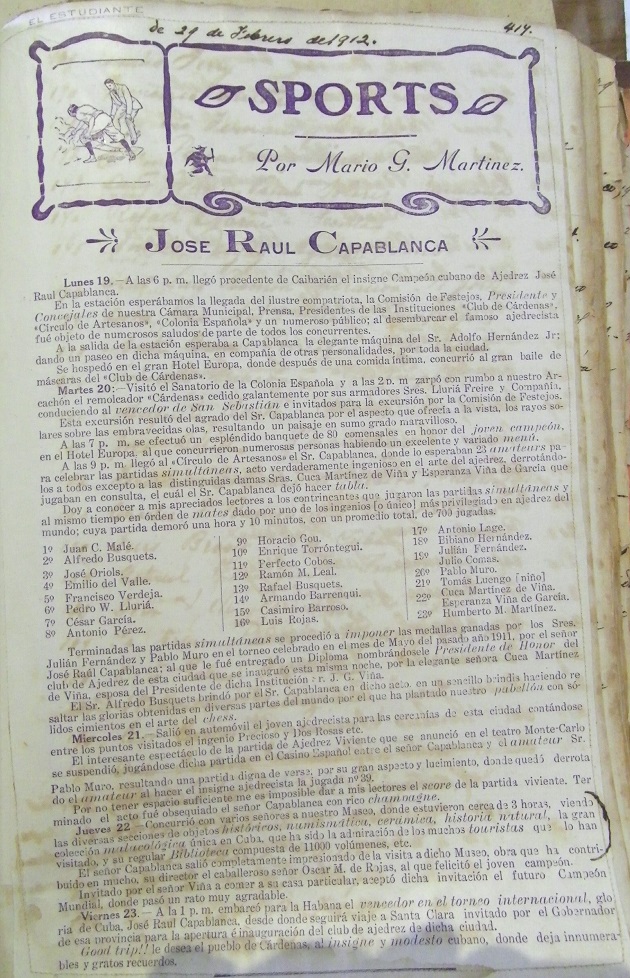 EL ESTUDIANTE
de 29 de Febrero de 1912.
417.
SPORTS
Por Mario G. Martinez.
JOSE RAUL CAPABLANCA
Lunes 19.—A las 6 p. m. llegó procedente de Caibarién el insigne Campeón cubano de Ajedrez José
Raul Capablanca.
En la estación esperábamos la llegada del ilustre compatriota, la Comisión de Festejos, Presidente y
Concejales de nuestra Cámara Municipal, Prensa, Presidentes de las Instituciones «Club de Cárdenas»,
«Círculo de Artesanos», «Colonia Española» y un numeroso público; al desembarcar el famoso ajedrecista
fué objeto de numerosos saludos de parte de todos los concurrentes.
A la salida de la estación esperaba a Capablanca la elegante máquina del Sr. Adolfo Hernández Jr:
dando un paseo en dicha máquina, en compañía de otras personalidades, por toda la ciudad.
Se hospedó en el gran Hotel Europa, donde después de una comida íntima, concurrió al gran baile de
máscaras del «Club de Cárdenas».
Martes 20:—Visitó el Sanatorio de la Colonia Española y a las 2 p. m zarpó con rumbo a nuestro Ar-
cachón el remolcador «Cárdenas» cedido galantemente por sus armadores Sres. Lluriá Freire y Compañía,
conduciendo al vencedor de San Sebastián e invitados para la excursión por la Comisión de Festejos.
Esta excursión resultó del agrado del Sr. Capablanca por el aspecto que ofrecía a la vista, los rayos so-
lares sobre las embravecidas olas, resultando un paisaje en sumo grado maravilloso.
A las 7 p. m. se efectuó un espléndido banquete de 80 comensales en honor del joven campeón,
en el Hotel Europa, al que concurrieron numerosas personas habiendo un excelente y variado menú.
A las 9 p. m. llegó al «Círculo de Artesanos» el Sr. Capablanca, donde lo esperaban 23 amateurs pa-
ra celebrar las partidas simultáneas, acto verdaderamente ingenioso en el arte del ajedrez, derrotándo-
los a todos excepto a las distinguidas damas Sras. Cuca Martínez de Viña y Esperanza Viña de García que
jugaban en consulta, el cuál el Sr. Capablanca dejó hacer tabla.
Doy a conocer a mis apreciados lectores a los contrincantes que jugaron las partidas simultáneas y
al mismo tiempo en órden de mates dado por uno de los ingenios [o único] más privilegiado en ajedrez del
mundo; cuya partida demoró una hora y 10 minutos, con un promedio total, de 700 jugadas.
1º Juan C. Malé.
2º Alfredo Busquets.
3º José Oriols.
4º Emilio del Valle.
5º Francisco Verdeja.
6º Pedro W. Lluriá.
7º César García.
8º Antonio Pérez.
9º Horacio Gou.
10º Enrique Torróntegui.
11º Perfecto Cobos.
12º Ramón M. Leal.
13º Rafael Busquets.
14º Armando Barrenqui.
15º Casimiro Barroso.
16º Luis Rojas.
17º Antonio Lage.
18º Bibiano Hernández.
Julián Fernández.
19º Julio Comas.
20º Pablo Muro.
21º Tomás Luengo [niño]
22º Cuca Martínez de Viña.
Esperanza Viña de García.
23º Humberto M. Martínez.
Terminadas las partidas simultáneas se procedió a imponer las medallas ganadas por los Sres.
Julián Fernández y Pablo Muro en el torneo celebrado en el mes de Mayo del pasado año 1911, por el señor
José Raúl Capablanca; al que le fué entregado un Diploma nombrándosele Presidente de Honor del
club de Ajedrez de esta ciudad que se inauguró esta misma noche, por la elegante señora Cuca Martínez
de Viña, esposa del Presidente de dicha Institución Sr. J. G. Viña.
El Sr. Alfredo Busquets brindó por el Sr. Capablanca en dicho acto, en un sencillo brindis haciendo re
saltar las glorias obtenidas en diversas partes del mundo por el que ha plantado nuestro pabellón con só-
lidos cimientos en el arte del chess.
Miercoles 21.—Salió en automóvil el joven ajedrecista para las cercanías de esta ciudad contándose
entre los puntos visitados el ingenio Precioso y Dos Rosas etc.
El interesante espectáculo de la partida de Ajedrez Viviente que se anunció en el teatro Monte-Carlo
se suspendió, jugándose dicha partida en el Casino Español entre el señor Capablanca y el amateur Sr.
Pablo Muro, resultando una partida digna de verse, por su gran aspecto y lucimiento, donde quedó derrota
do el amateur al hacer el insigne ajedrecista la jugada nº 39.
Por no tener espacio suficiente me es imposible dar a mis lectores el score de la partida viviente. Ter
minado el acto fué obsequiado el señor Capablanca con rico champagne.
Jueves 22—Concurrió con varios señores a nuestro Museo, donde estuvieron cerca de 3 horas, viendo
las diversas secciones de objetos históricos, numismática, cerámica, historia natural, la gran
colección malacológica única en Cuba, que ha sido la admiración de los muchos touristas que lo han
visitado, y su regular Biblioteca compuesta de 11000 volúmenes, etc.
El señor Capablanca salió completamente impresionado de la visita a dicho Museo, obra que ha contri-
buido en mucho, su director el caballeroso señor Oscar M. de Rojas, al que felicitó el joven campeón.
Invitado por el señor Viña a comer a su casa particular, aceptó dicha invitación el futuro Campeón
Mundial, donde pasó un rato muy agradable.
Viernes 23.—A la 1 p. m. embarcó para la Habana el vencedor en el torneo internacional, glo
ria de Cuba, José Raul Capablanca, desde donde seguirá viaje a Santa Clara invitado por el Gobernador
de esa provincia para la apertura é inauguración del club de ajedrez de dicha ciudad.
Good trip!! le desea el pueblo de Cárdenas, al insigne y modesto cubano, donde deja innumera-
bles y gratos recuerdos.